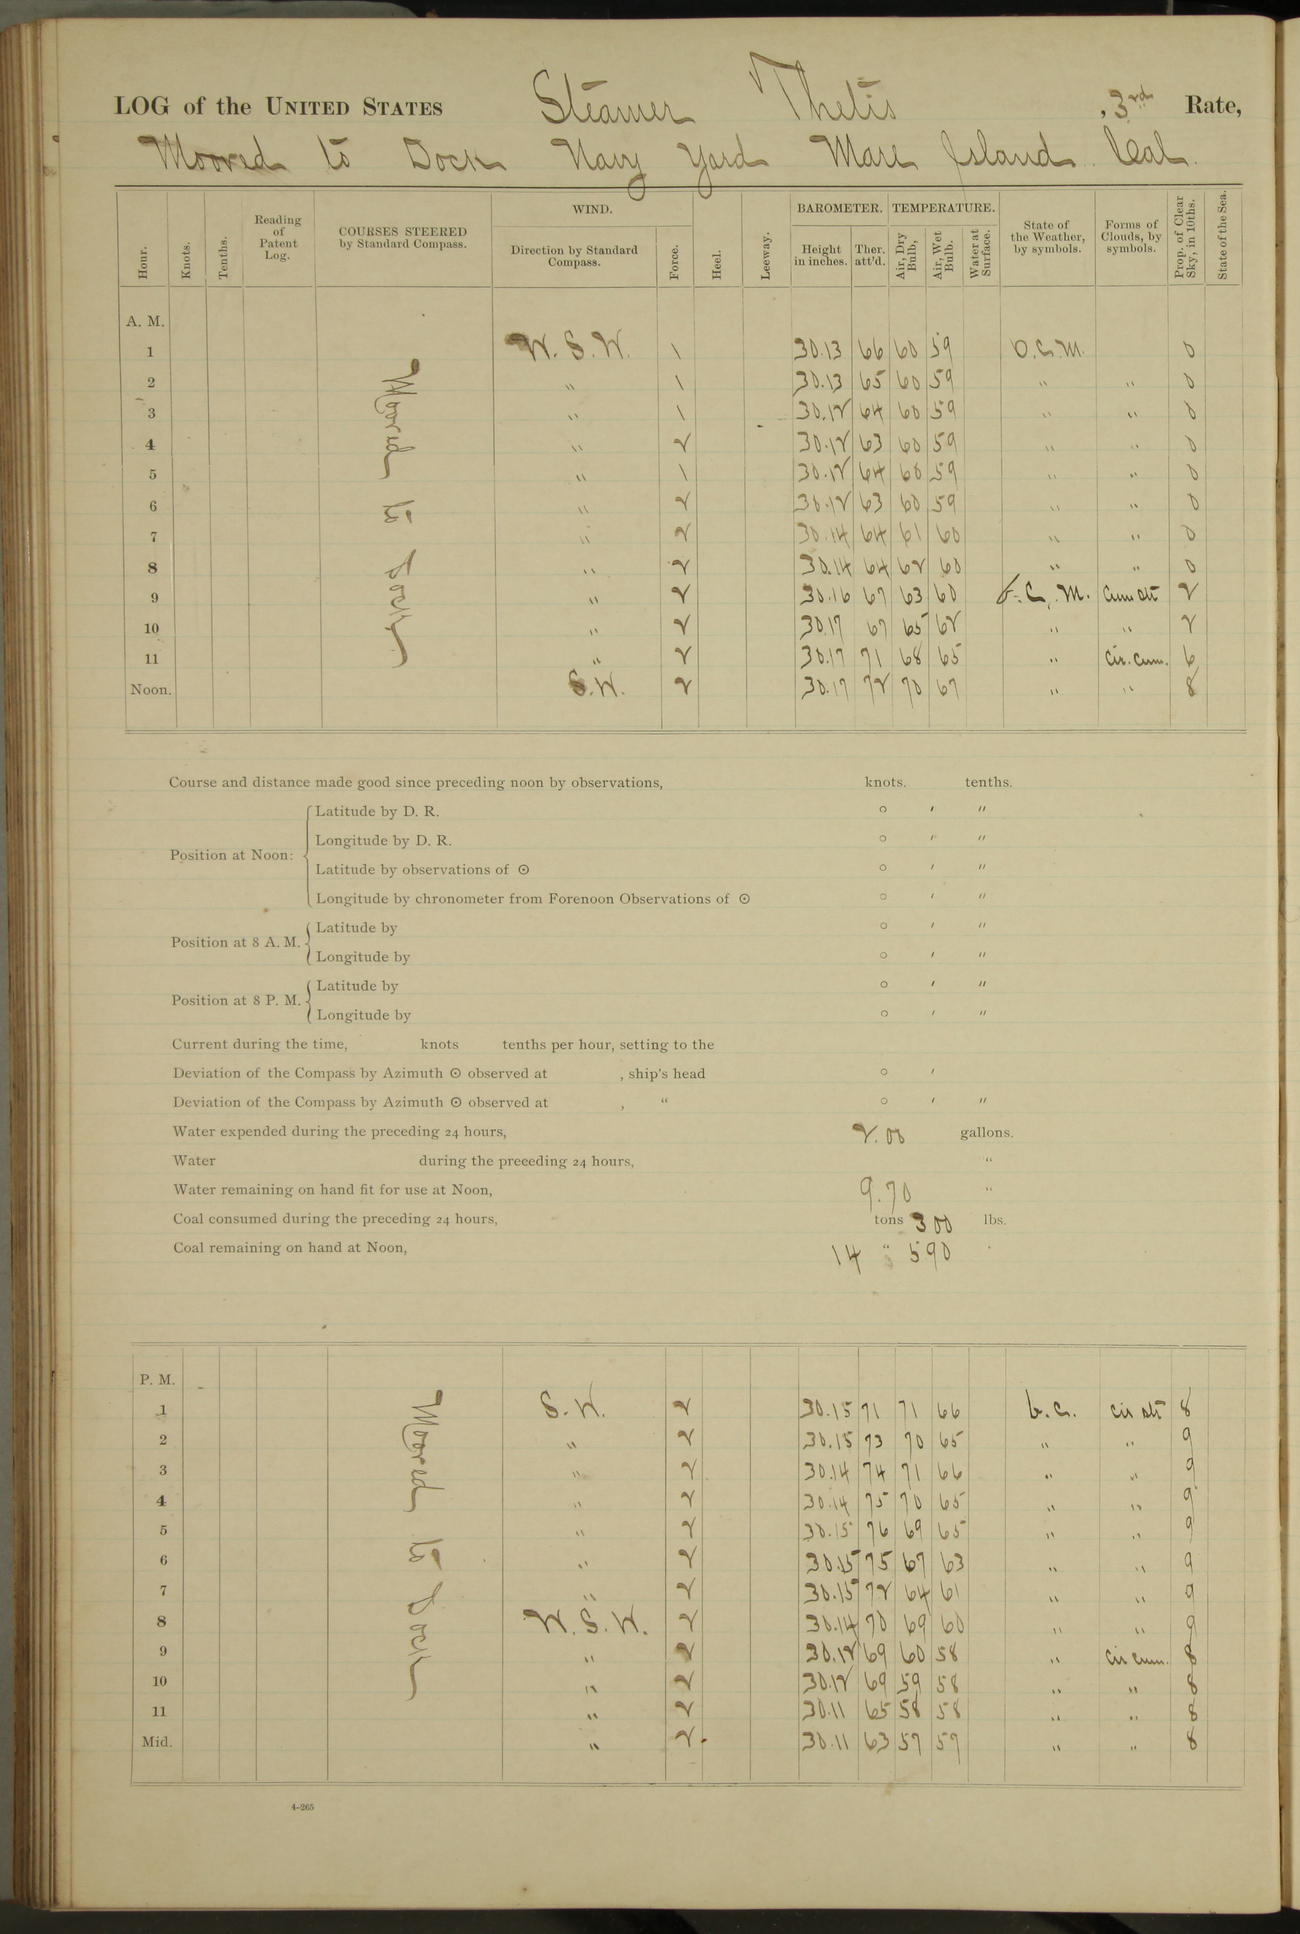 LOG of the UNITED STATES Steamer Thetis , 3rd Rate,
Moored to Dock Navy Yard Mare Island Cal.
Hour. Knots. Tenths. Reading of Patent Log. COURSES STEERED by Standard Compass. WIND. Direction by Standard Compass. Force. Heel. Leeway. BAROMETER. Height in inches. Ther. att'd. TEMPERATURE. Air, Dry Bulb, Air, Wet Bulb. Water at Surface. State of the Weather, by symbols. Forms of Clouds, by symbols. Prop. of Clear Sky, in 10ths. State of the Sea.
A. M.
Moored to Dock
1 W. S. W. 1 30.13 66 60 59 O.C.M. 0
2 " 1 30.13 65 60 59 " " 0
3 " 1 30.12 64 60 59 " " 0
4 " 2 30.12 63 60 59 " " 0
5 " 1 30.12 64 60 59 " " 0
6 " 2 30.12 63 60 59 " " 0
7 " 2 30.14 64 61 60 " " 0
8 " 2 30.14 64 62 60 " " 0
9 " 2 30.16 67 63 60 b. C. M. Cum str 2
10 " 2 30.17 67 65 62 " " 2
11 " 2 30.17 71 68 65 " cir. cum. 6
Noon. S.W. 2 30.17 72 70 67 " " 8
Course and distance made good since preceding noon by observations, knots. tenths.
Position at Noon: Latitude by D. R. ° ′ ″
Longitude by D. R. ° ′ ″
Latitude by observations of ⊙ ° ′ ″
Longitude by chronometer from Forenoon Observations of ⊙ ° ′ ″
Position at 8 A. M. Latitude by ° ′ ″
Longitude by ° ′ ″
Position at 8 P. M. Latitude by ° ′ ″
Longitude by ° ′ ″
Current during the time, knots tenths per hour, setting to the
Deviation of the Compass by Azimuth ⊙ observed at , ship's head ° ′
Deviation of the Compass by Azimuth ⊙ observed at , " ° ′ ″
Water expended during the preceding 24 hours, 2.00 gallons.
Water during the preceding 24 hours, "
Water remaining on hand fit for use at Noon, 9.70 "
Coal consumed during the preceding 24 hours, tons 300 lbs.
Coal remaining on hand at Noon, 14 " 590
P. M.
Moored to Dock
1 S. W. 2 30.15 71 71 66 b.c. cir str 8
2 " 2 30.15 73 70 65 " " 9
3 " 2 30.14 74 71 66 " " 9
4 " 2 30.14 75 70 65 " " 9
5 " 2 30.15 76 69 65 " " 9
6 " 2 30.15 75 67 63 " " 9
7 " 2 30.15 72 64 61 " " 9
8 W. S. W. 2 30.14 70 69 60 " " 9
9 " 2 30.12 69 60 58 " cir cum. 8
10 " 2 30.12 69 59 58 " " 8
11 " 2 30.11 65 58 58 " " 8
Mid. " 2 30.11 63 57 57 " " 8
4-265